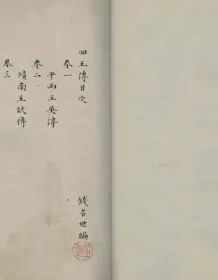 四王傳目次
卷一
平西王吳傳
卷二
靖南王耿傳
卷三
錢名世編